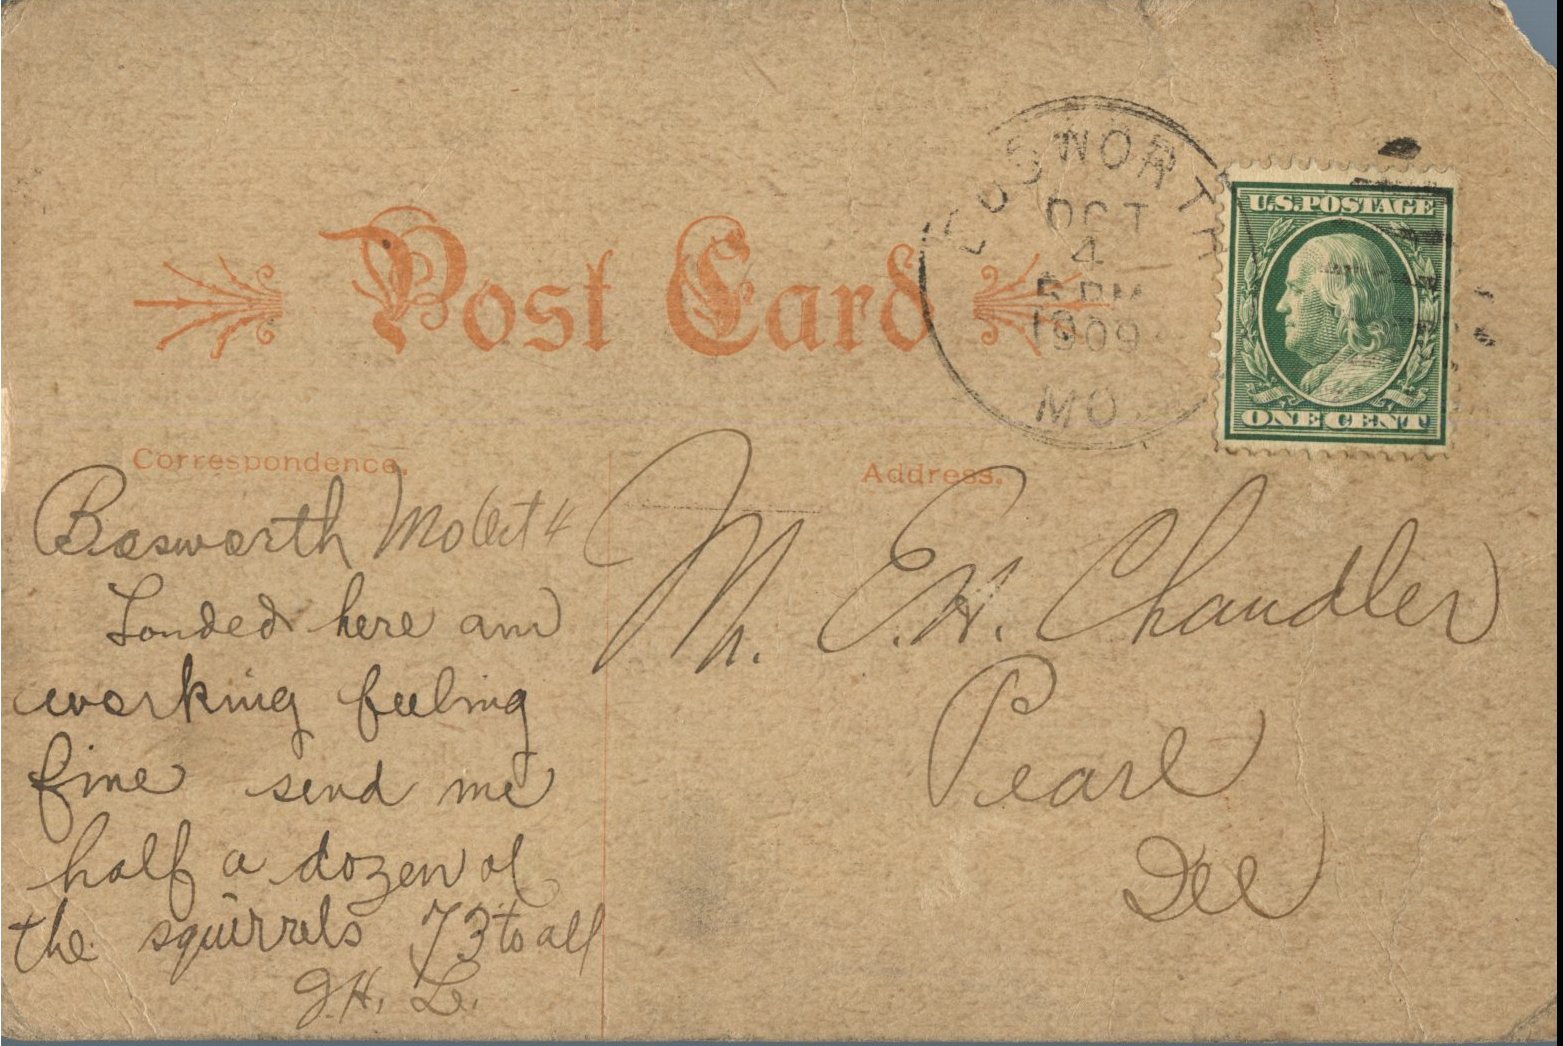 Post Card
BOSWORTH
OCT
4
5 PM
1909
MO
U.S. POSTAGE
ONE CENT
Correspondence.
Address.
Bosworth Mo Oct 4
Landed here and
working feeling
fine send me
half a dozen of
the squirrels 73 to all
J.H. L.
M. E.H. Chandler
Pearl
Ill